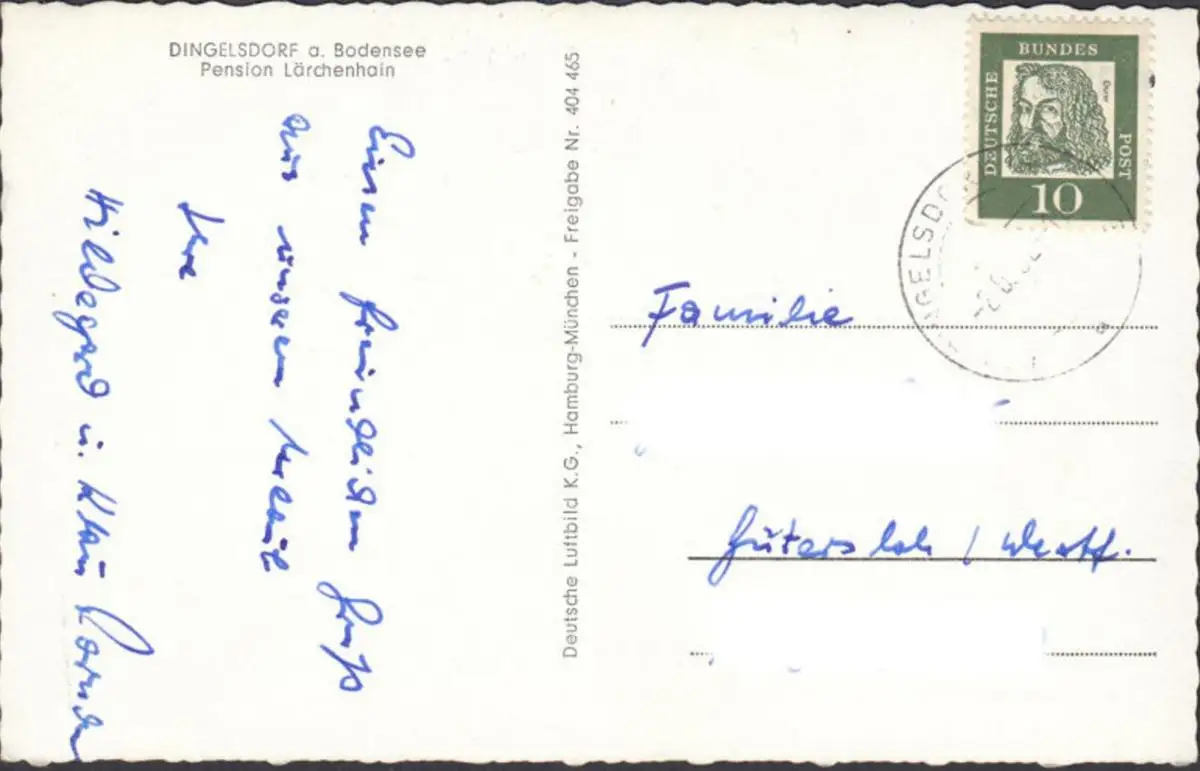 DINGELSDORF a. Bodensee
Pension Lärchenhain
Einen freundlichen Gruß
aus unserem Urlaub
Ihre
Hildegard u. Klaus
Deutsche Luftbild K.G., Hamburg-München - Freigabe Nr. 404 465
DEUTSCHE
BUNDES
POST
Dürer
10
Familie
Gütersloh / Westf.